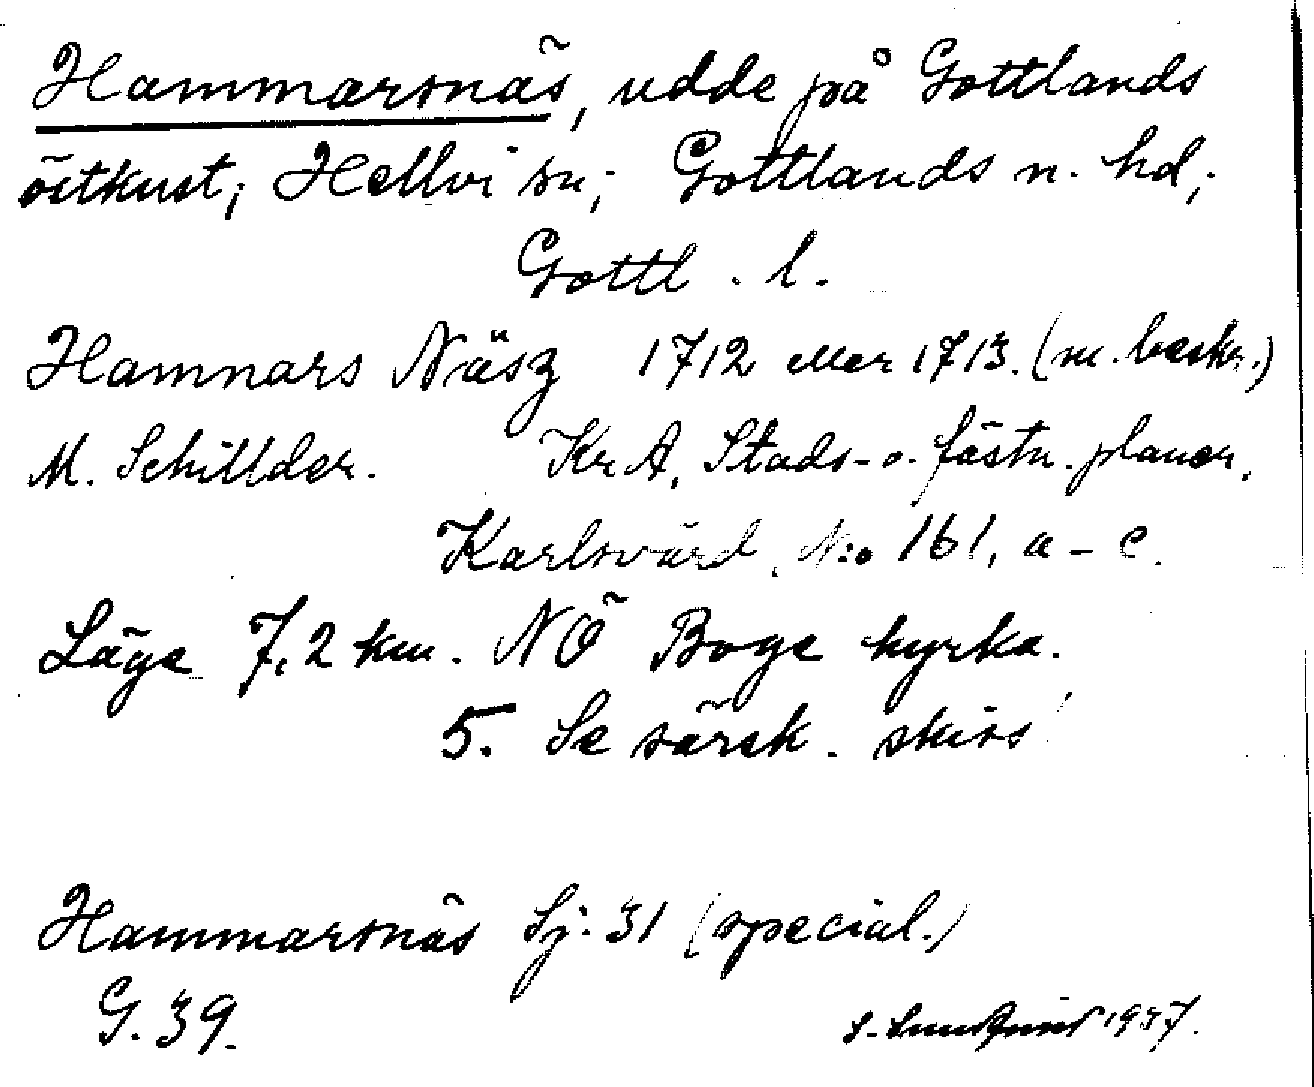 Hammarsnäs, udde på Gottlands
östkust; Hellvi sn; Gottlands n. hd;
Gottl. l.
Hamnars Näsz 1712 eller 1713. (m. beskr.)
M. Schillder. Kr A, Stads- o. fästn. planer,
Karlsvärd, N:o 161, a-c.
Läge 7,2 km. NÖ Boge kyrka.
5. Se särsk. skiss!
Hammarsnäs Sj. 31 (special.)
G. 39. 1937.